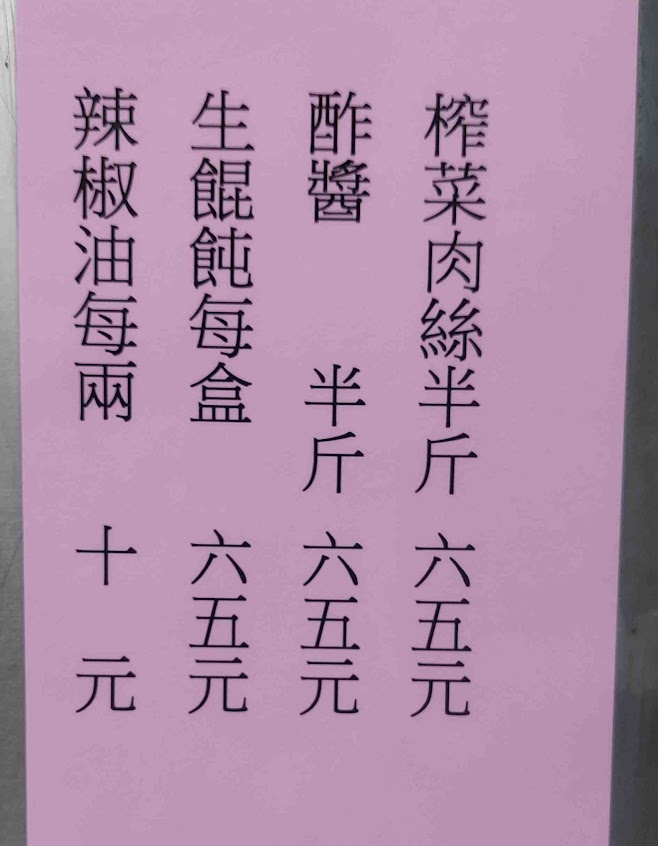 榨菜肉絲半斤 六五元
酢醬 半斤 六五元
生餛飩每盒 六五元
辣椒油每兩 十 元